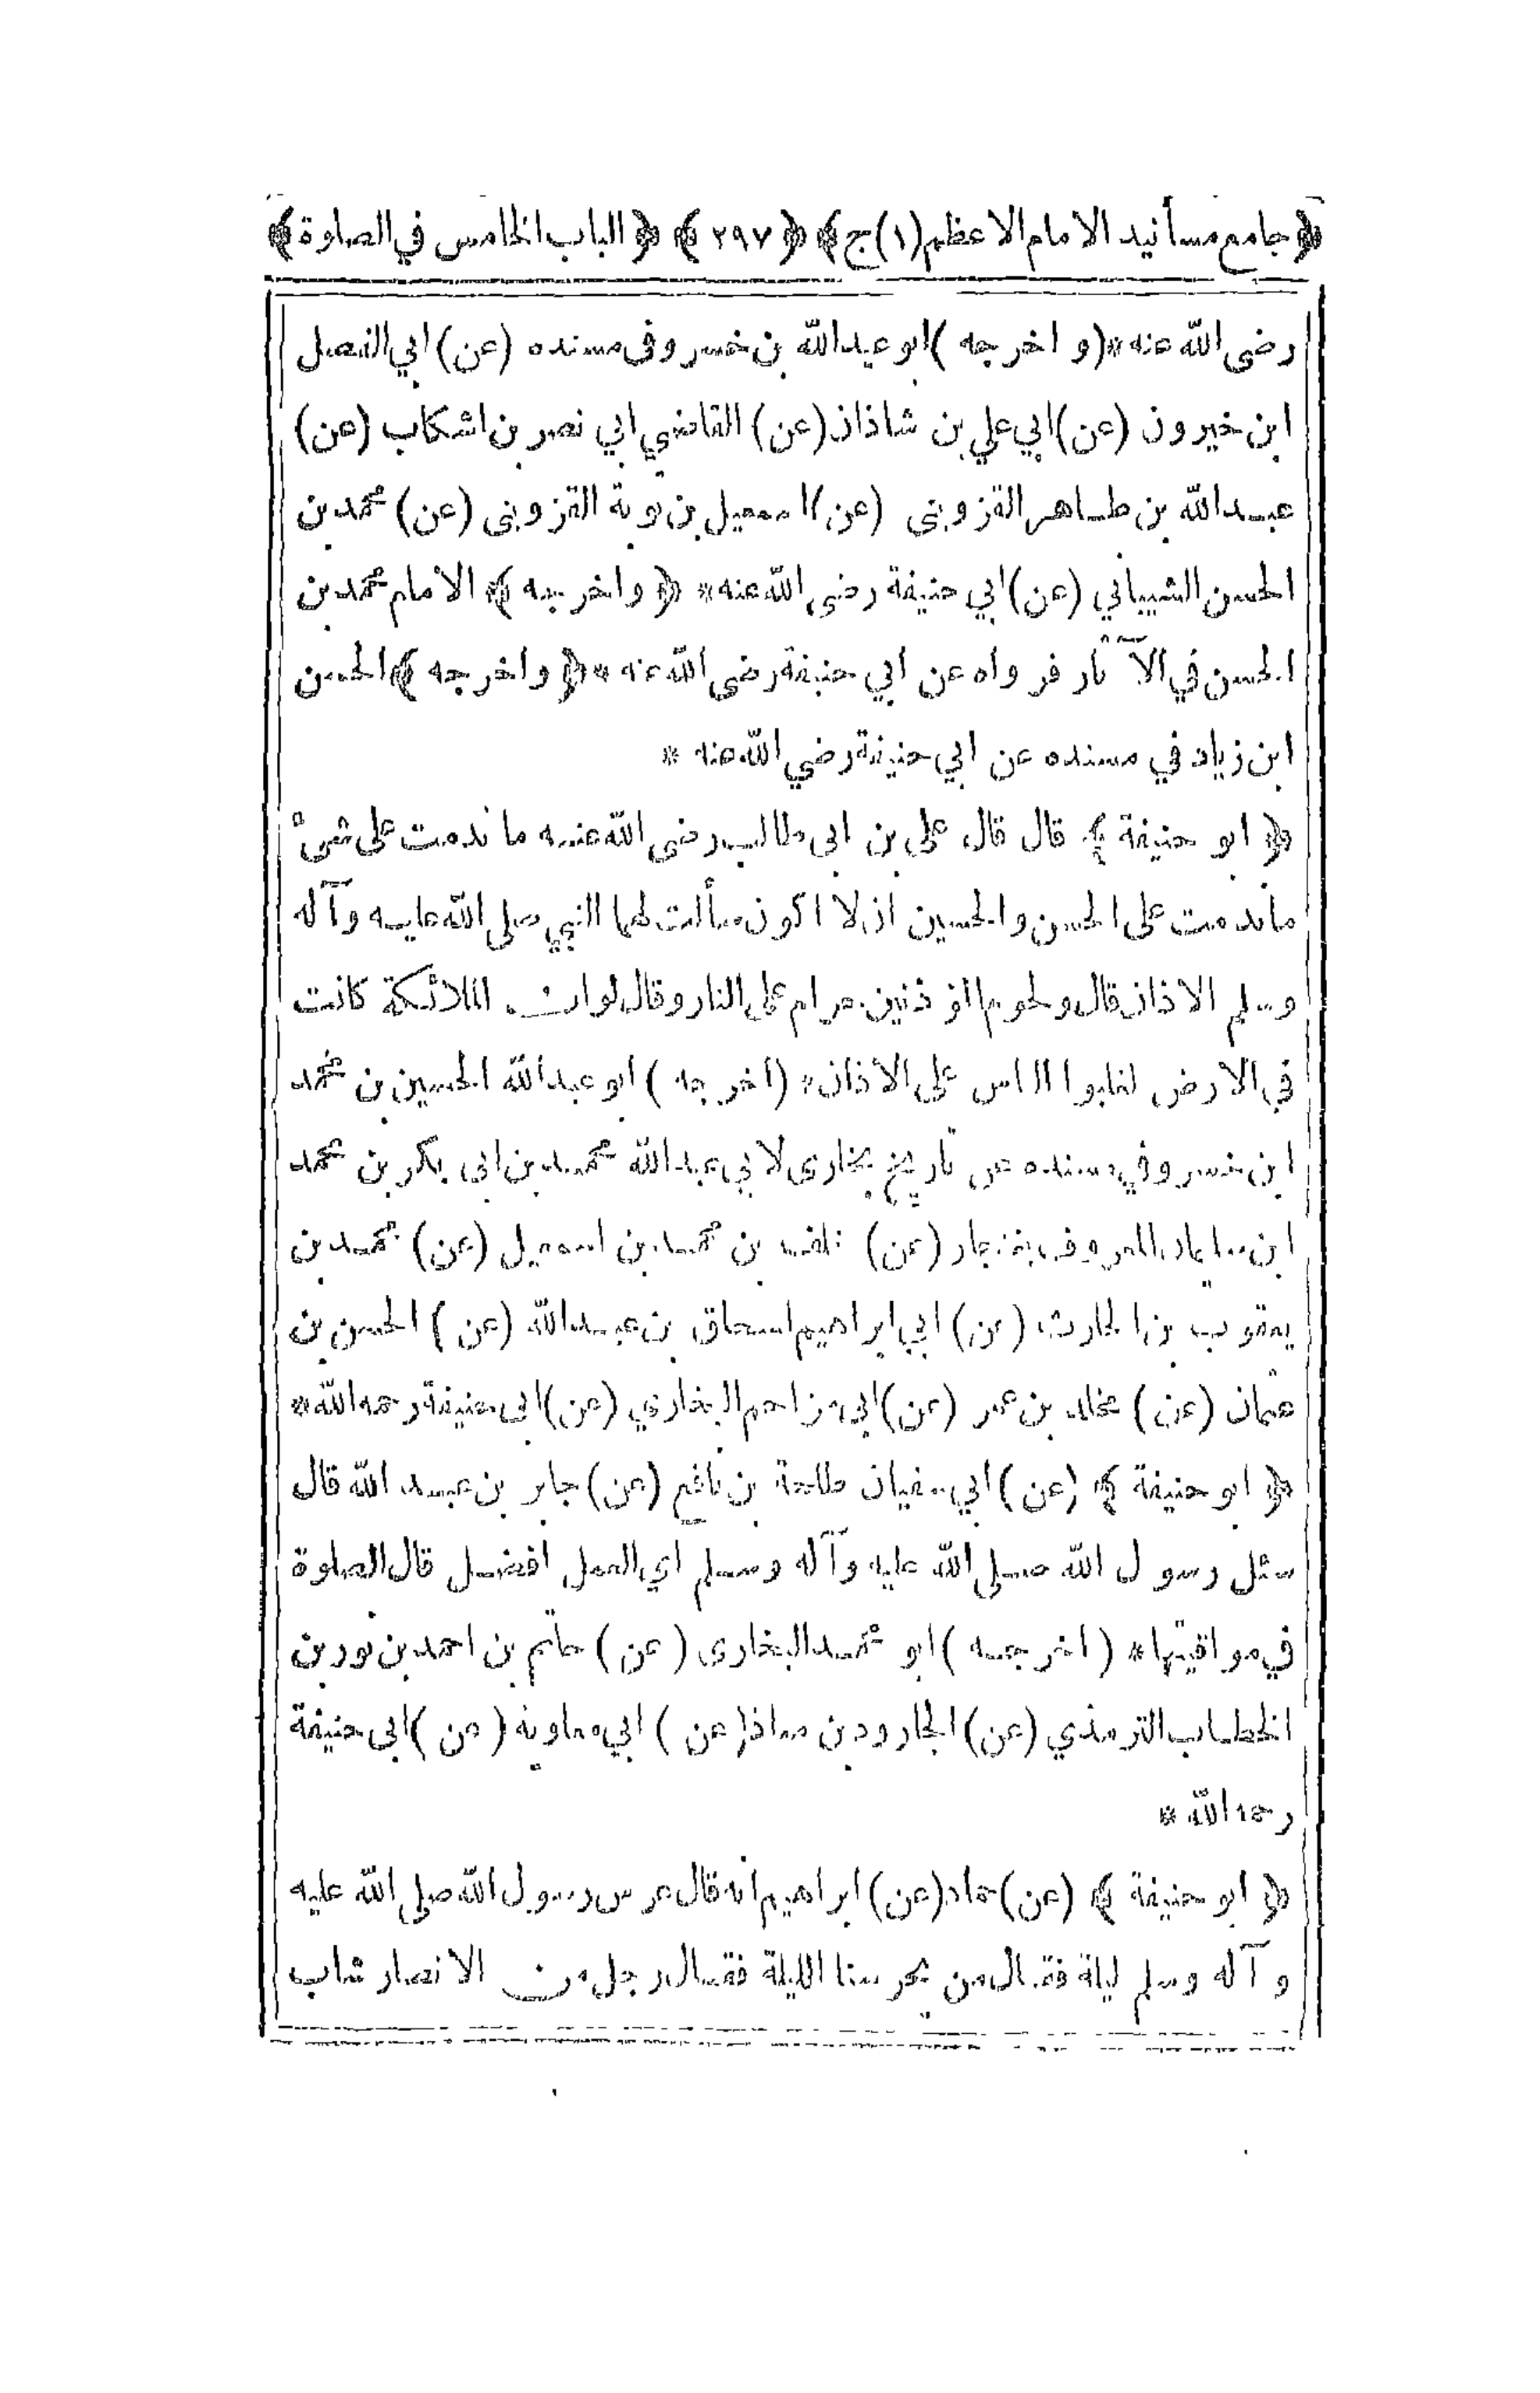 ﴿ جامع مسأنيد الامام الاعظم (١) ج ﴾ ﴿ ٢٩٧ ﴾ ﴿ الباب الخامس في الصلوة ﴾
رضى الله عنه * ( و اخرجه ) ابو عبدالله بن خسرو فى مسنده (عن) ابي الفضل
ابن خيرون (عن) ابي علي بن شاذان (عن) القاضي ابي نصر بن اشكاب (عن)
عبد الله بن طاهر القزوينى (عن) اسمعيل بن توبة القزوينى (عن) محمد بن
الحسن الشيباني (عن) ابي حنيفة رضى الله عنه * ﴿ واخرجه ﴾ الامام محمد بن
الحسن في الآثار فرواه عن ابي حنيفة رضى الله عنه * ﴿ واخرجه ﴾ الحسن
ابن زياد في مسنده عن ابي حنيفة رضي الله عنه *
﴿ ابو حنيفة ﴾ قال قال على بن ابى طالب رضى الله عنه ما ندمت على شىء
ماندمت على الحسن والحسين ان لا اكون سألت لهما النبي صلى الله عليه وآله
وسلم الاذان قال ولحوم المؤذنين حرام على النار وقال لو ان الملائكة كانت
في الارض لغلبوا الناس على الأذان * ( اخرجه ) ابو عبدالله الحسين بن محمد
ابن خسرو في مسنده عن تاريخ بخارى لابي عبدالله محمد بن ابى بكر بن محمد
ابن سليمان المعروف بغنجار (عن) خلف بن محمد بن اسمعيل (عن) محمد بن
يعقوب بن الحارث (عن) ابي ابراهيم اسحاق بن عبد الله (عن) الحسن بن
عثمان (عن) مخلد بن عمر (عن) ابي مزاحم البخاري (عن) ابى حنيفة رحمه الله *
﴿ ابو حنيفة ﴾ (عن) ابي سفيان طلحة بن نافع (عن) جابر بن عبد الله قال
سئل رسول الله صلى الله عليه وآله وسلم اي العمل افضل قال الصلوة
في مواقيتها * ( اخرجه ) ابو محمد البخارى (عن) حاتم بن احمد بن نور بن
الخطاب الترمذي (عن) الجارود بن معاذ (عن) ابي معاوية (عن) ابى حنيفة
رحمه الله *
﴿ ابو حنيفة ﴾ (عن) حماد (عن) ابراهيم انه قال عرس رسول الله صلى الله عليه
وآله وسلم ليلة فقال من يحرسنا الليلة فقال رجل من الانصار شاب